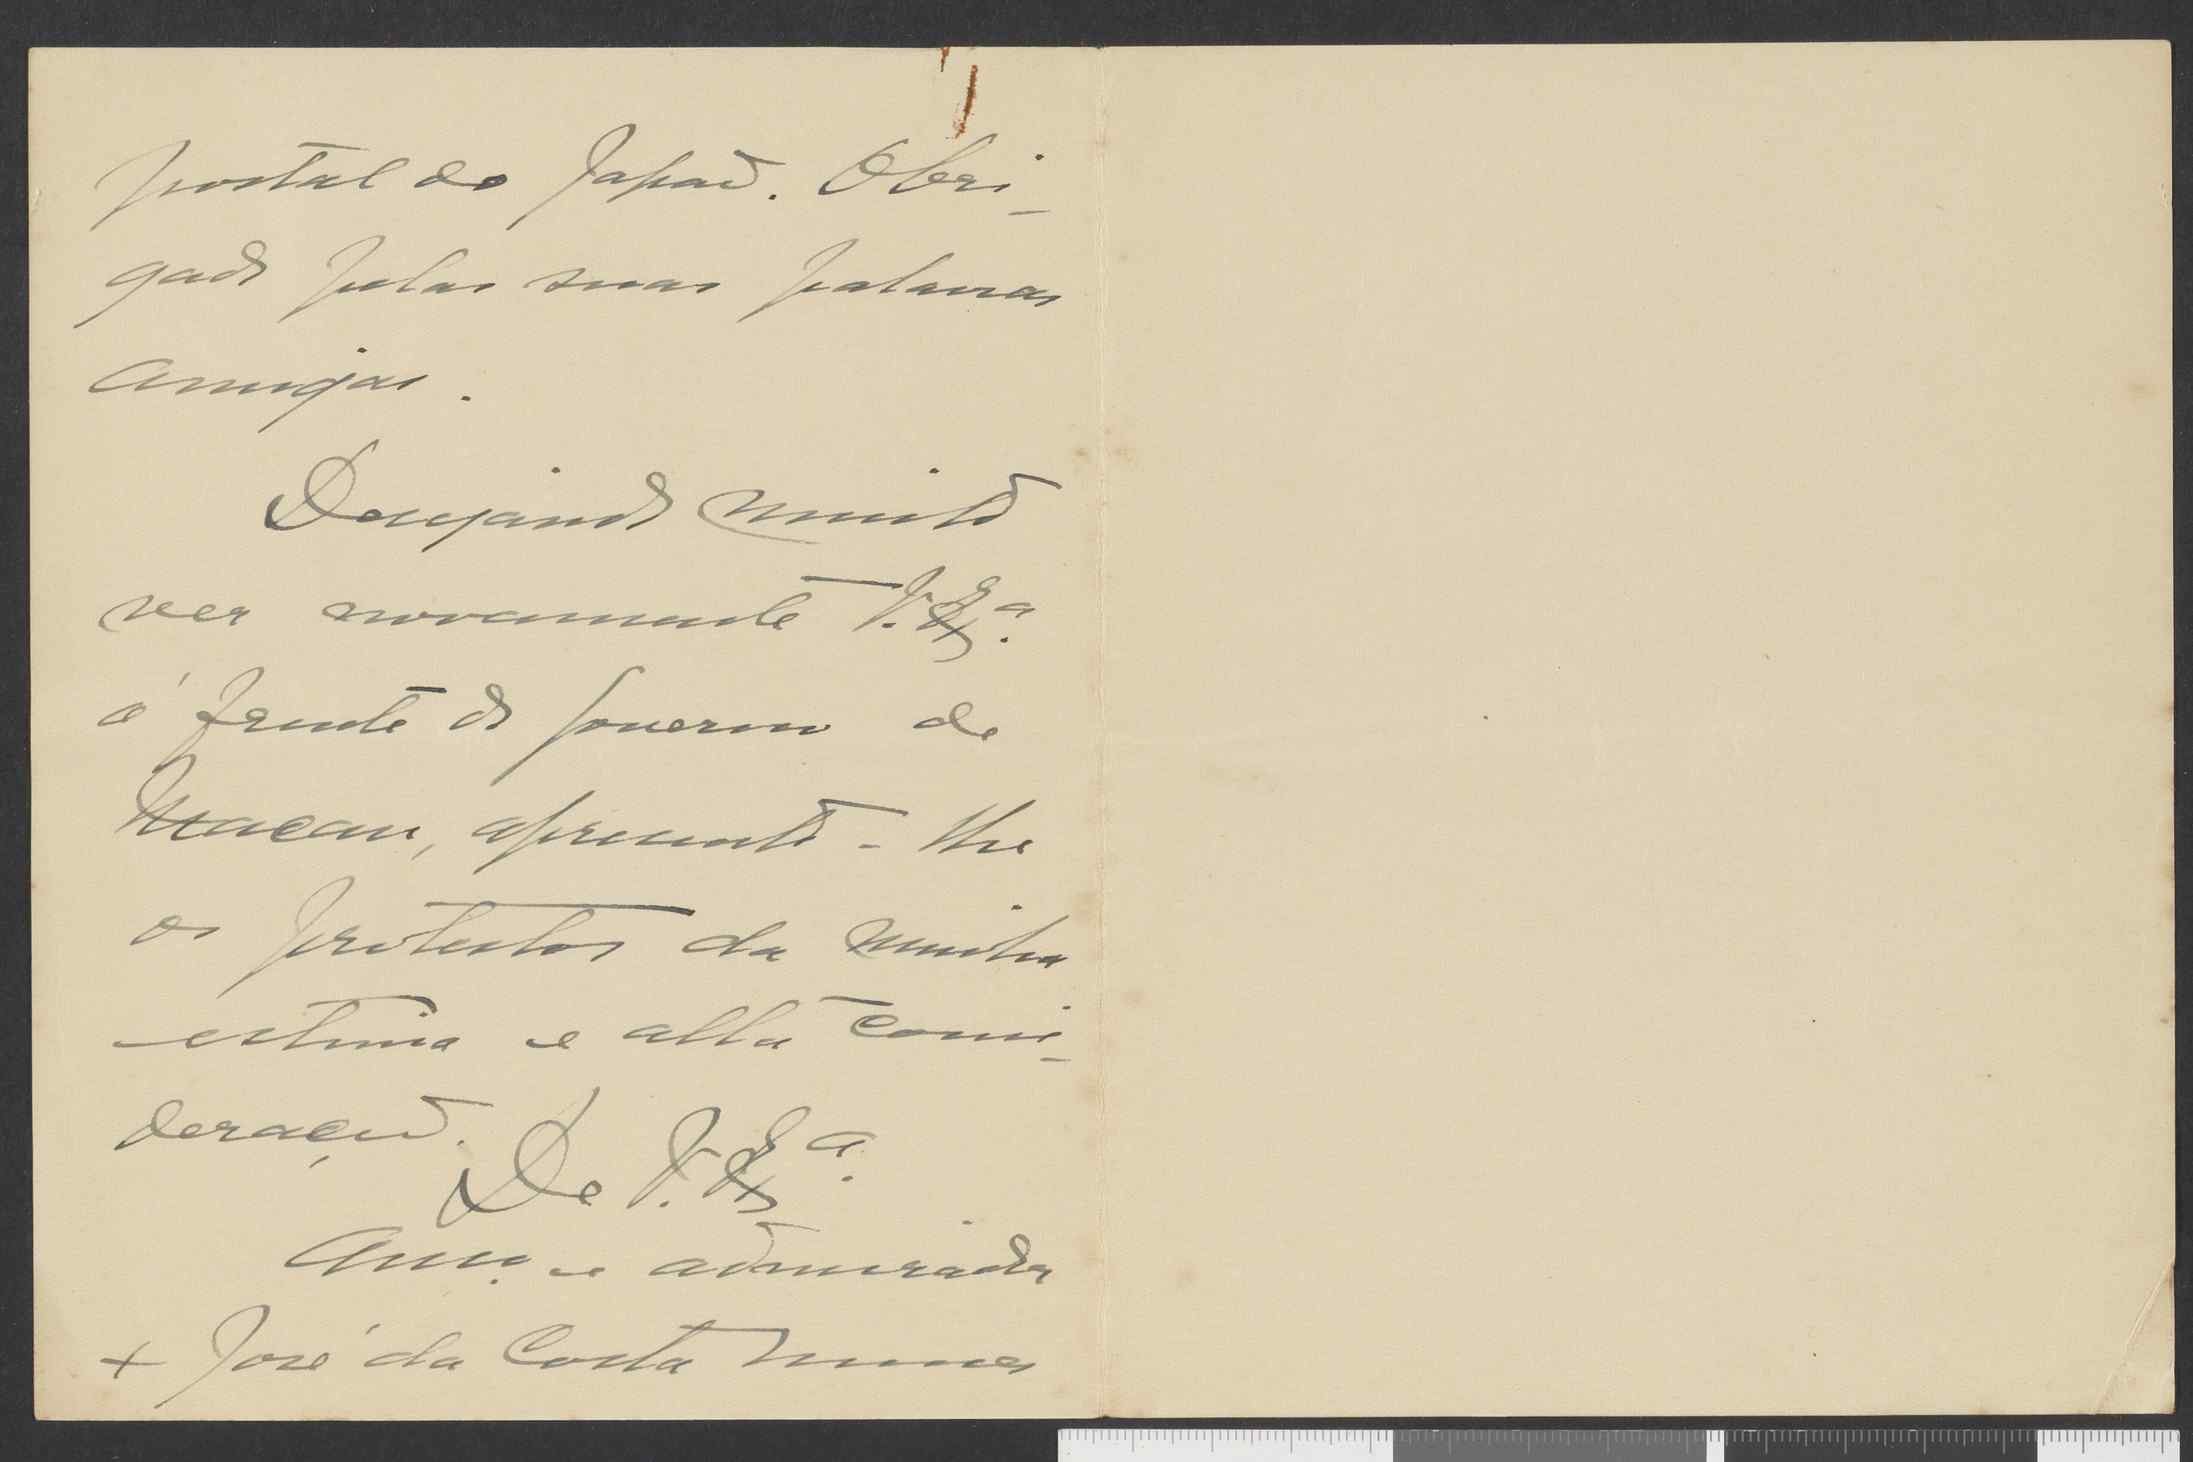 postal do Japão. Obri-
gado pelas suas palavras
amigas.
Desejando muito
ver novamente V. Exª.
á frente do governo de
Macau, apresento-lhe
os protestos da minha
estima e alta consi-
deração.
De V. Exª.
Amº. e admirador
+ José da Costa Nunes